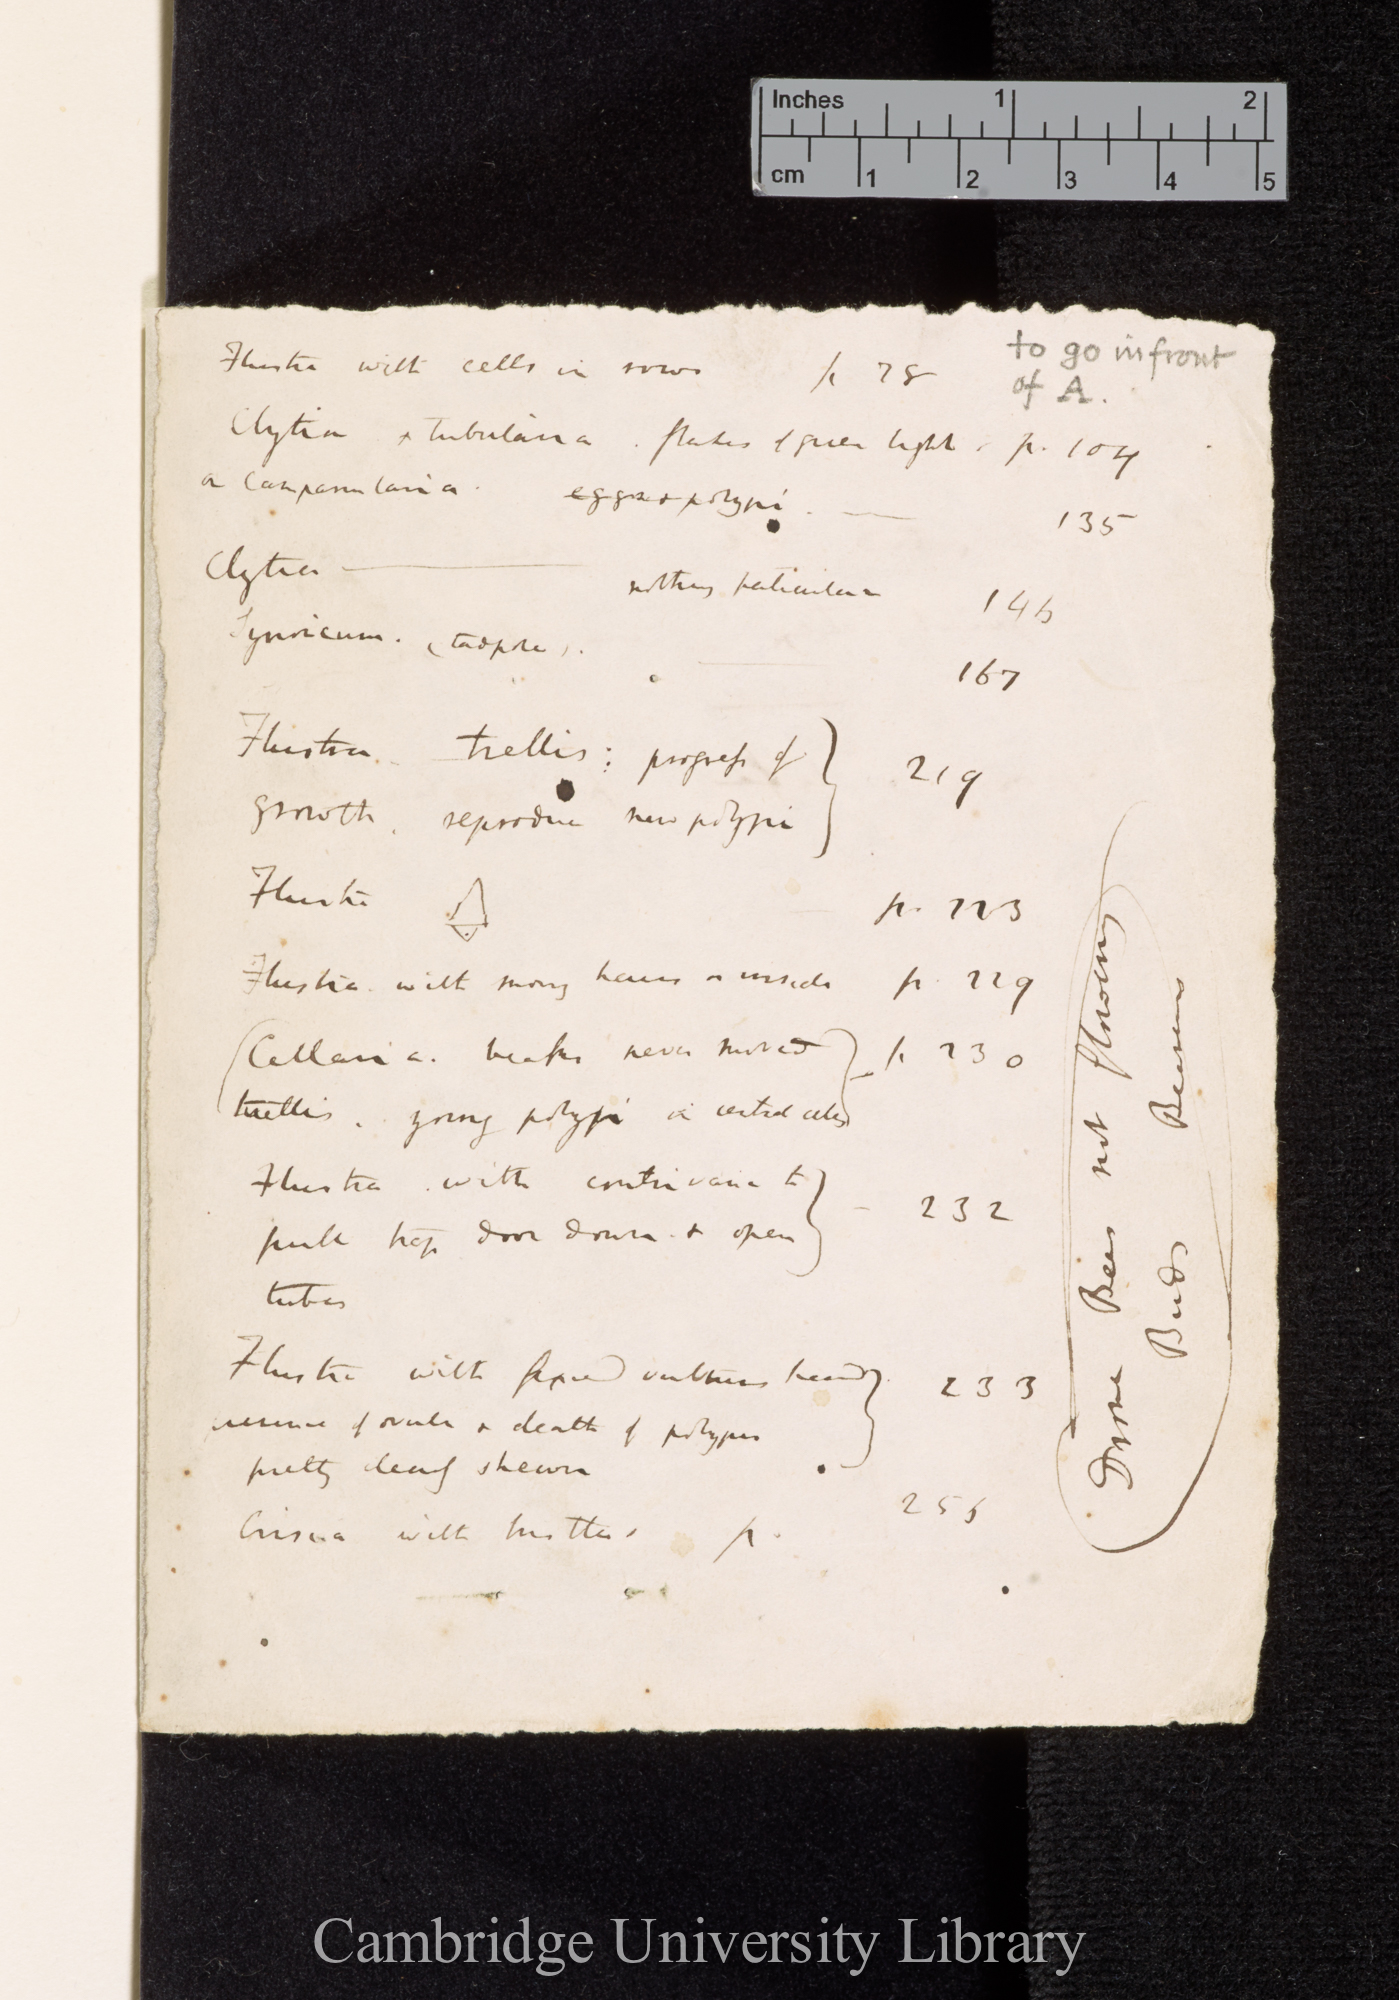 Inches 1 2
cm 1 2 3 4 5
to go in front
of A.
Flustra with cells in rows p 78
Clytia & Tubularia . flashes of green light . p. 104
or Campanularia . eggs & polypi . — 135
Clytia — nothing particular 146
Synoicum . (tadpole) . 167
Flustra trellis : progress of
growth . reproduce new polypi } 219
Flustra p. 223
Flustra with many hairs or p. 229
(Cellaria . beaks never moved
trellis . young polypi in central cells) p 230
Flustra with contrivance to
pull trap door down & open } - 232
tubes
Flustra with fixed vultures head
of ovules & death of polypus } 233
pretty clearly shewn
Crisia with bristles p. 256
Drone Bees not flowering
Buds
Cambridge University Library